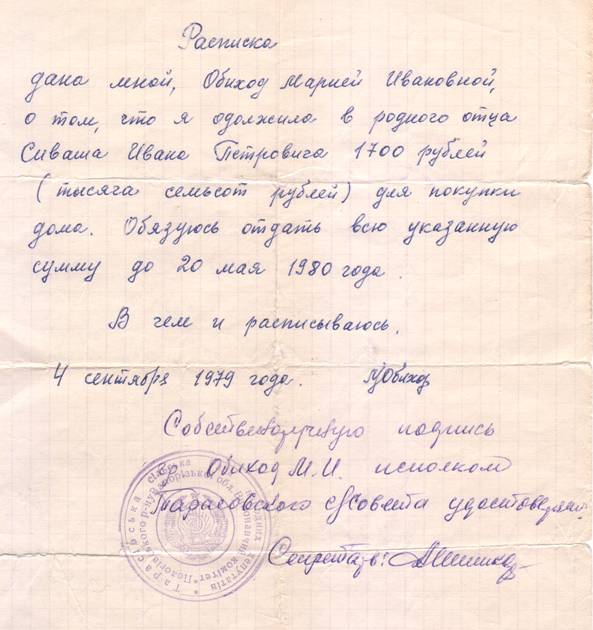 Расписка
дана мной, Обиход Марией Ивановной,
о том, что я одолжила в родного отца
Сиваша Ивана Петровича 1700 рублей
(тысяча семьсот рублей) для покупки
дома. Обязуюсь отдать всю указанную
сумму до 20 мая 1980 года.
В чем и расписываюсь.
4 сентября 1979 года. МОбиход
Собственноручную подпись
гр. Обиход М.И. исполком
Тарасовского с/Совета удостоверяет.
Секретарь:
Тарасівська сільська народних депутатів
виконавчий комітет * Пологівського р-ну Запорізької обл.